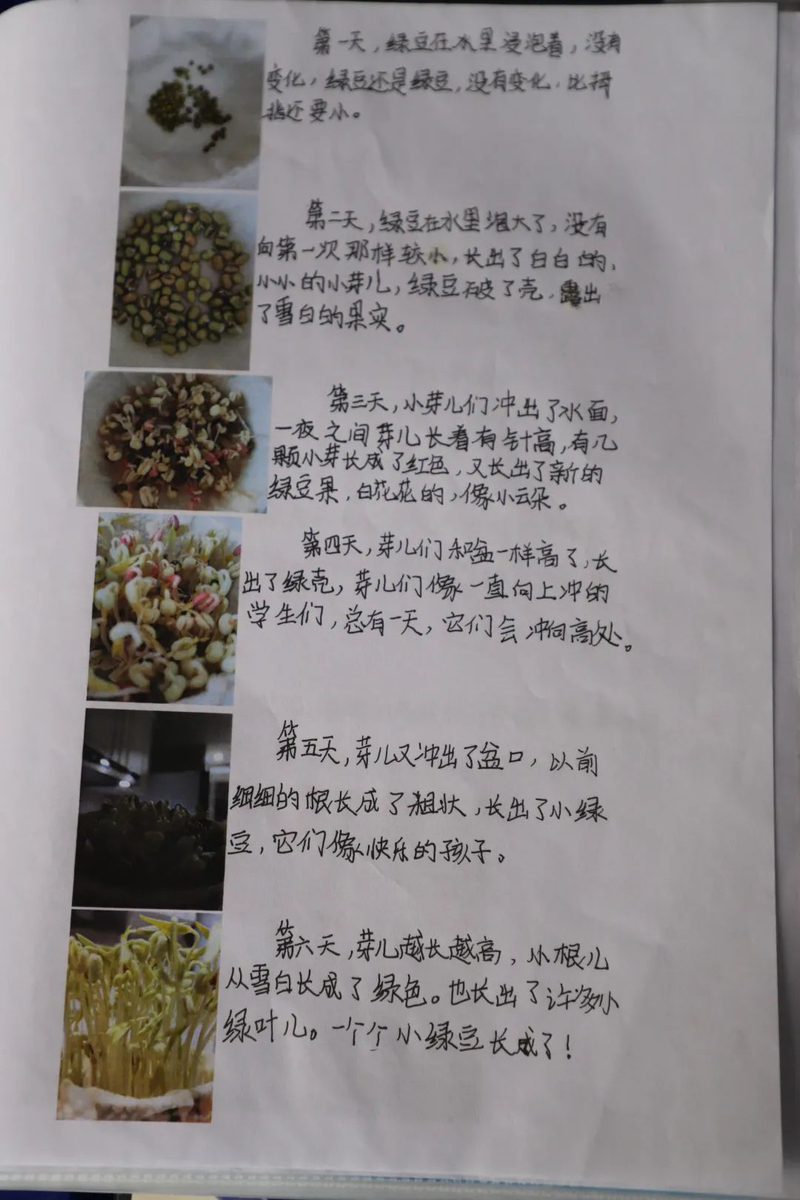 第一天，绿豆在水里浸泡着，没有
变化，绿豆还是绿豆，没有变化，比拇
指还要小。
第二天，绿豆在水里泡大了，没有
向第一次那样较小，长出了白白的，
小小的小芽儿，绿豆破了壳，露出
了雪白的果实。
第三天，小芽儿们冲出了水面，
一夜之间芽儿长着有针高，有几
颗小芽长成了红色，又长出了新的
绿豆果，白花花的，像小云朵。
第四天，芽儿们和盆一样高了，长
出了绿壳，芽儿们像一直向上冲的
学生们，总有一天，它们会冲向高处。
第五天，芽儿又冲出了盆口，以前
细细的根长成了粗状，长出了小绿
豆，它们像快乐的孩子。
第六天，芽儿越长越高，小根儿
从雪白长成了绿色。也长出了许多小
绿叶儿。一个个小绿豆长成了！